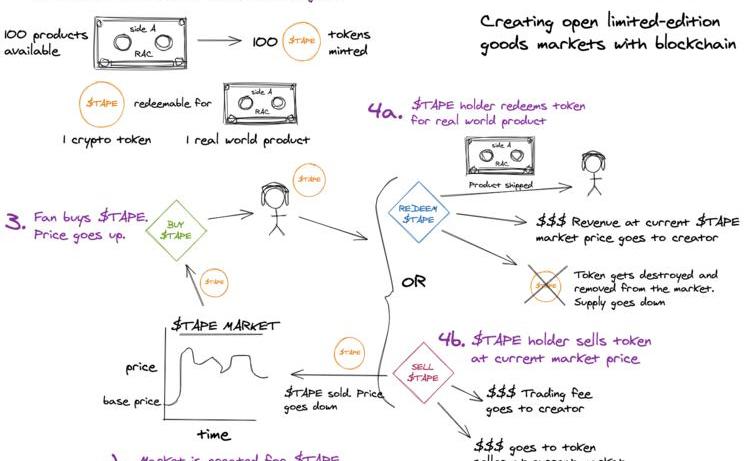 Creating open limited-edition
goods markets with blockchain
100 products
available
side A
RAC
100
$TAPE
tokens
minted
$TAPE
redeemable for
side A
RAC
1 crypto token
1 real world product
3. Fan buys $TAPE.
Price goes up.
BUY
$TAPE
$TAPE
$TAPE
$TAPE MARKET
price
base price
time
4a. $TAPE holder redeems token
for real world product
side A
RAC
Product shipped
REDEEM
$TAPE
$$$ Revenue at current $TAPE
market price goes to creator
$TAPE
Token gets destroyed and
removed from the market.
Supply goes down
OR
4b. $TAPE holder sells token
at current market price
SELL
$TAPE
$TAPE
$TAPE sold. Price
goes down
$$$ Trading fee
goes to creator
$$$ goes to token
Market is created for $TAPE